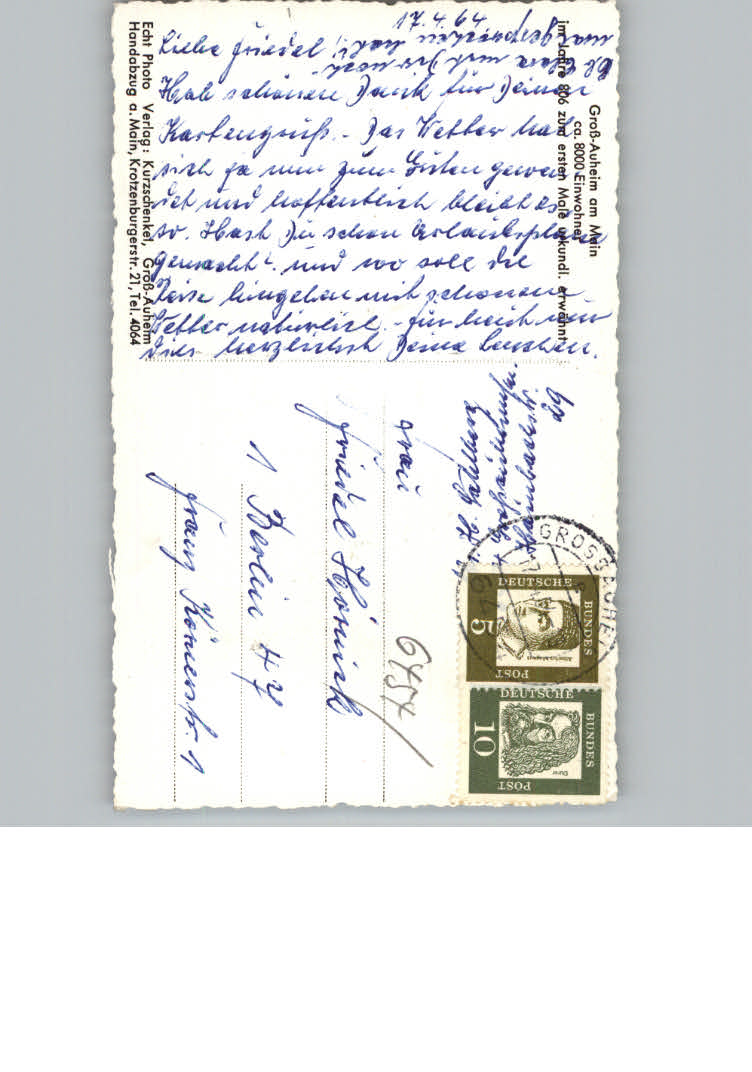 Groß-Auheim am Main
ca. 8000 Einwohner
im Jahre 806 zum ersten Male urkundl. erwähnt
17.4.64
Liebe Friedel!
Hab schönen Dank für Deinen
Kartengruß. - Das Wetter hat
sich ja nun zum Guten gewen-
det und hoffentlich bleibt es
so. Hast Du schon Urlaubspläne
gemacht? und wo soll die
Reise hingehen mit schönem
Wetter natürlich. - Für heute nur
dies herzlichst Deine
Echt Photo Verlag: Kurzschenkel, Groß-Auheim
Handabzug a. Main, Krotzenburgerstr. 21, Tel. 4064
GROSSAUHEIM
DEUTSCHE
BUNDES
POST
5
Albertus Magnus
DEUTSCHE
BUNDES
POST
10
Dürer
6457/
Frau
Friedel Hörnick
1 Berlin 47
Franz Körnerstr. 1